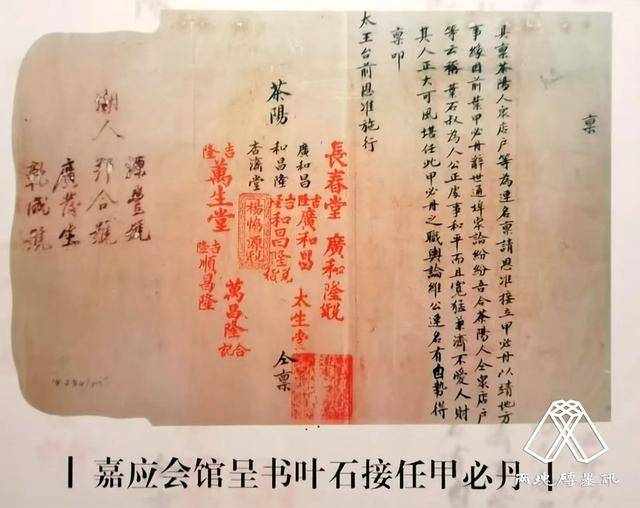 稟
具稟茶陽人眾店戶等為連名稟請恩准接立甲必丹以靖地方
事緣因前葉甲必丹辭世通埠眾論紛紛吾合茶陽人仝眾店戶
等云稱葉石叔為人公正處事和平而且寬猛兼濟不愛人財
其人正大可風堪任此甲必丹之職輿論維公連名有由勢得
稟叩
太王台前恩准施行
茶陽
長春堂
廣和隆號
廣和昌
和昌隆
杏濟堂
吉隆
廣和昌
太生堂
和昌隆
楊協源號
吉隆
萬生堂
萬昌隆
合記
吉隆
順昌隆
仝稟
潮人
源豐號
邦合號
廣茂生
乾成號
嘉应会馆呈书叶石接任甲必丹
两地磚墨訊